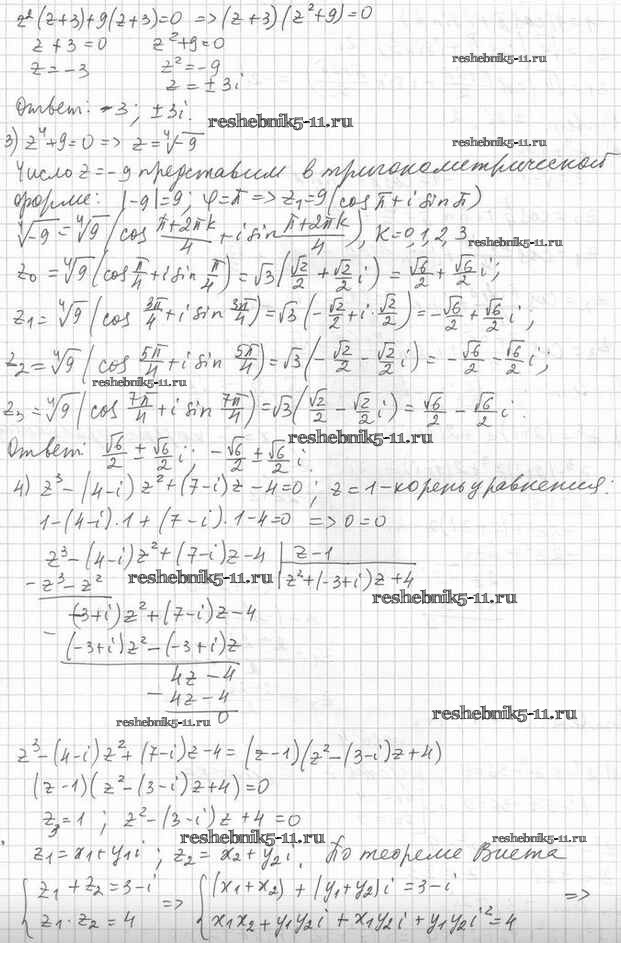 z²(z+3)+9(z+3)=0 => (z+3)(z²+9)=0
z+3=0 z²+9=0
reshebnik5-11.ru
z=-3 z²=-9
z=±3i
Ответ: -3; ±3i.
reshebnik5-11.ru
3) z⁴+9=0 => z=⁴√-9
reshebnik5-11.ru
Число z=-9 представим в тригонометрической
форме: |-9|=9; φ=π => z₁=9(cos π + i sin π)
⁴√-9 = ⁴√9 (cos (π+2πk)/4 + i sin (π+2πk)/4), k=0,1,2,3.
reshebnik5-11.ru
z₀ = ⁴√9 (cos π/4 + i sin π/4) = √3 (√2/2 + √2/2 i) = √6/2 + √6/2 i;
z₁ = ⁴√9 (cos 3π/4 + i sin 3π/4) = √3 (-√2/2 + i·√2/2) = -√6/2 + √6/2 i;
z₂ = ⁴√9 (cos 5π/4 + i sin 5π/4) = √3 (-√2/2 - √2/2 i) = -√6/2 - √6/2 i;
reshebnik5-11.ru
z₃ = ⁴√9 (cos 7π/4 + i sin 7π/4) = √3 (√2/2 - √2/2 i) = √6/2 - √6/2 i.
reshebnik5-11.ru
Ответ: √6/2 ± √6/2 i; -√6/2 ± √6/2 i.
4) z³-(4-i)z²+(7-i)z-4=0; z=1-корень уравнения:
1-(4-i)·1+(7-i)·1-4=0 => 0=0
z³-(4-i)z²+(7-i)z-4 | z-1
-z³-z² z²+(-3+i)z+4
reshebnik5-11.ru
reshebnik5-11.ru
(-3+i)z²+(7-i)z-4
- (-3+i)z²-(-3+i)z
4z-4
- 4z-4
0
reshebnik5-11.ru
reshebnik5-11.ru
z³-(4-i)z²+(7-i)z-4=(z-1)(z²-(3-i)z+4)
(z-1)(z²-(3-i)z+4)=0
z₃=1; z²-(3-i)z+4=0
reshebnik5-11.ru
reshebnik5-11.ru
z₁=x₁+y₁i; z₂=x₂+y₂i. По теореме Виета
{ z₁+z₂=3-i => { (x₁+x₂)+(y₁+y₂)i=3-i =>
z₁·z₂=4 x₁x₂+y₁y₂i+x₁y₂i+y₁y₂i²=4